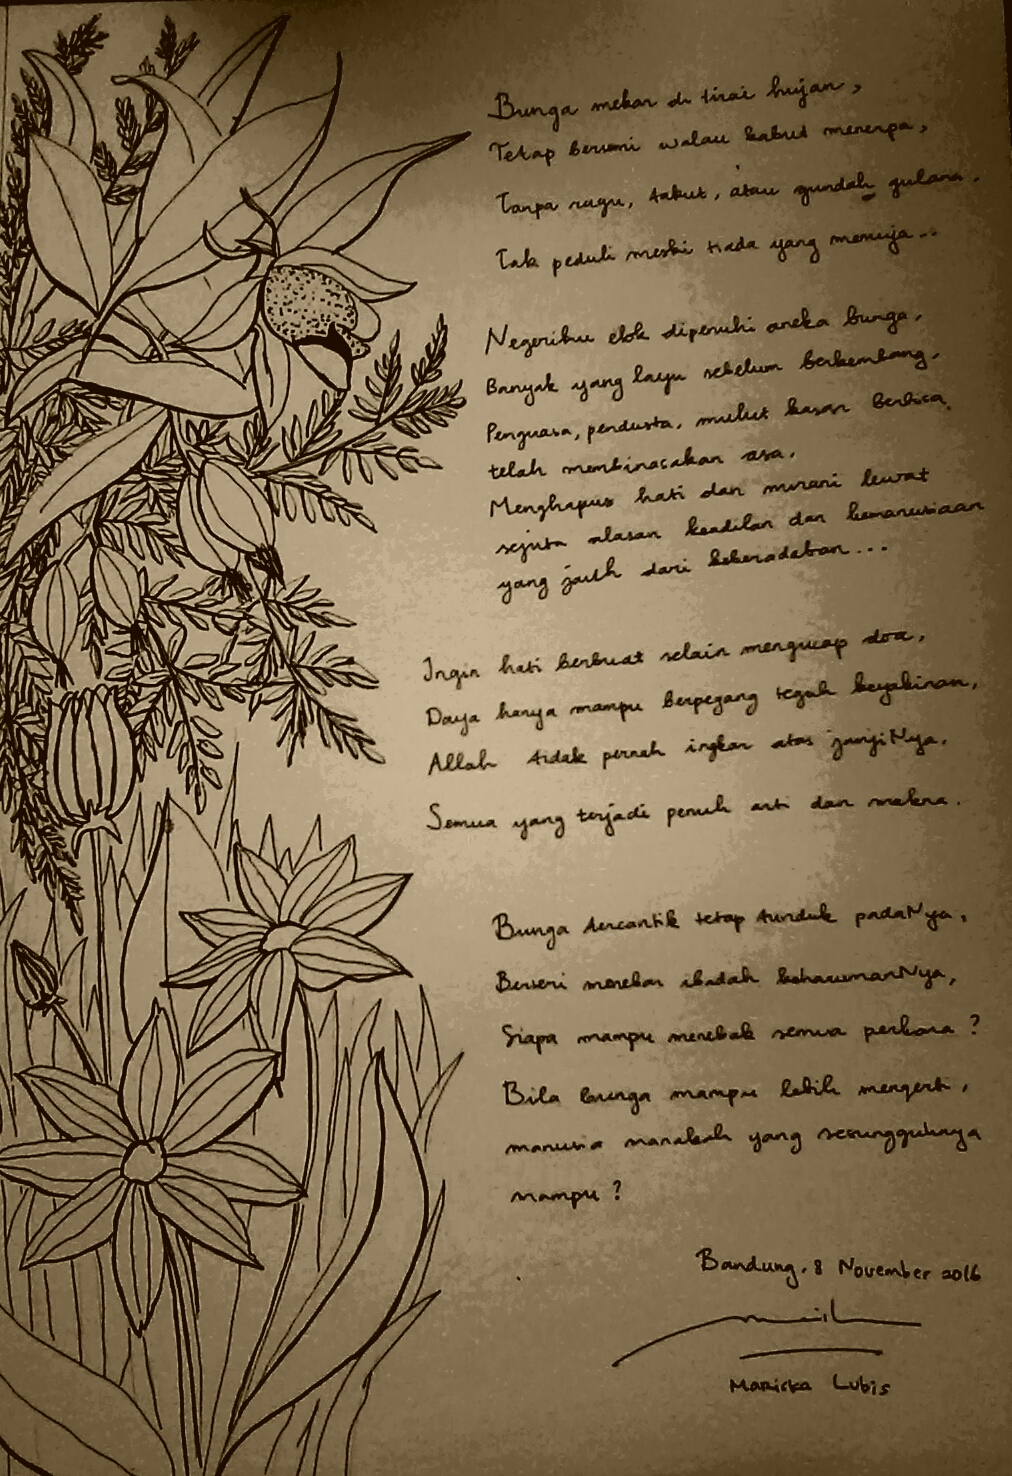 Bunga mekar di tirai hujan,
Tetap bersemi walau kabut menerpa,
Tanpa ragu, takut, atau gundah gulana.
Tak peduli meski tiada yang memuja...
Negeriku elok dipenuhi aneka bunga,
Banyak yang layu sebelum berkembang.
Penguasa, pendusta, mulut kasar berbisa,
telah membinasakan asa.
Menghapus hati dan nurani lewat
sejuta alasan keadilan dan kemanusiaan
yang jauh dari keberadaban...
Ingin hati berbuat selain mengucap doa,
Daya hanya mampu berpegang teguh keyakinan,
Allah tidak pernah ingkar atas janjiNya.
Semua yang terjadi penuh arti dan makna.
Bunga tercantik tetap tunduk padaNya,
Berseri menebar indah keharumanNya,
Siapa mampu menebak semua perkara?
Bila bunga mampu lebih mengerti,
manusia manakah yang sesungguhnya
mampu?
Bandung, 8 November 2016
Mariska Lubis